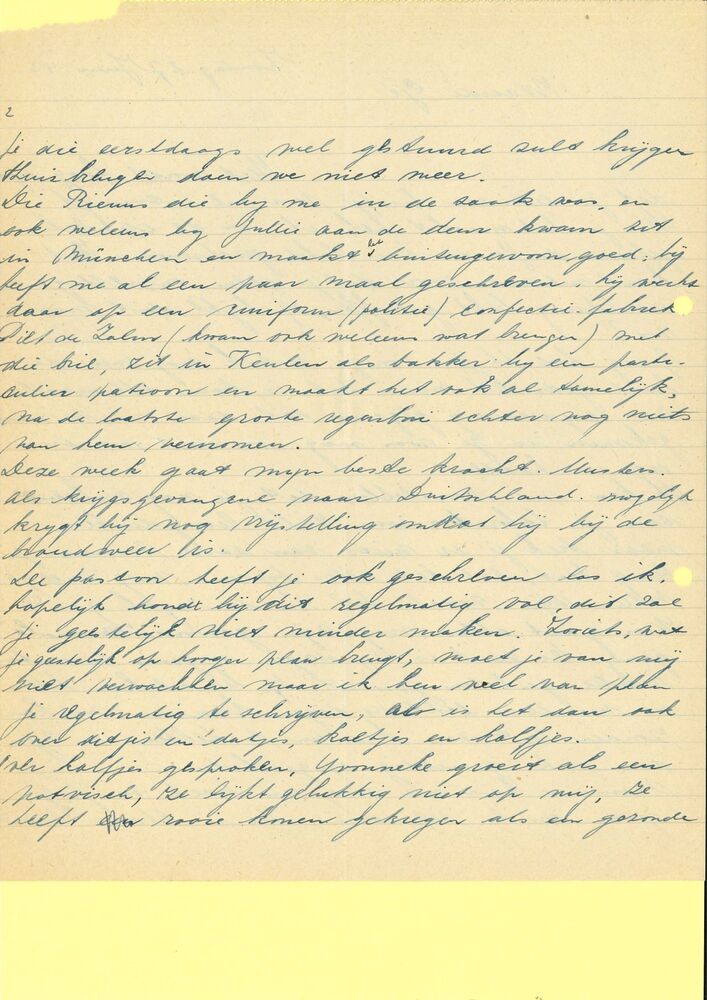 2
je die eerstdaags wel gestuurd zult krijgen
thuis brengen doen we niet meer.
Die Rienus die by me in de zaak was, en
ook weleens by jullie aan de deur kwam zit
in München en maakt het buitengewoon goed; hij
heeft me al een paar maal geschreven, hij werkt
daar op een uniform (politie) confectie-fabriek
Piet de Zalm (kwam ook weleens wat brengen) met
die bril, zit in Keulen als bakker by een parti-
culier patroon en maakt het ook al tamelijk,
na de laatste groote regenbui echter nog niets
van hem vernomen.
Deze week gaat mijn beste kracht. Musters.
als krijgsgevangene naar Duitschland. mogelyk
krygt hij nog vrijstelling omdat hij bij de
brandweer is.
De pastoor heeft je ook geschreven las ik,
hopelijk houdt hij dit regelmatig vol, dit zal
je geestelijk niet minder maken. Zooiets, wat
je geestelijk op hooger plan brengt, moet je van mij
niet verwachten maar ik ben wel van plan
je regelmatig te schrijven, al is het dan ook
over ditjes en datjes, koetjes en kalfjes.
over kalfjes gesproken, Yvonneke groeit als een
potvisch, ze lijkt gelukkig niet op mij, ze
heeft rooie konen gekregen als een gezonde